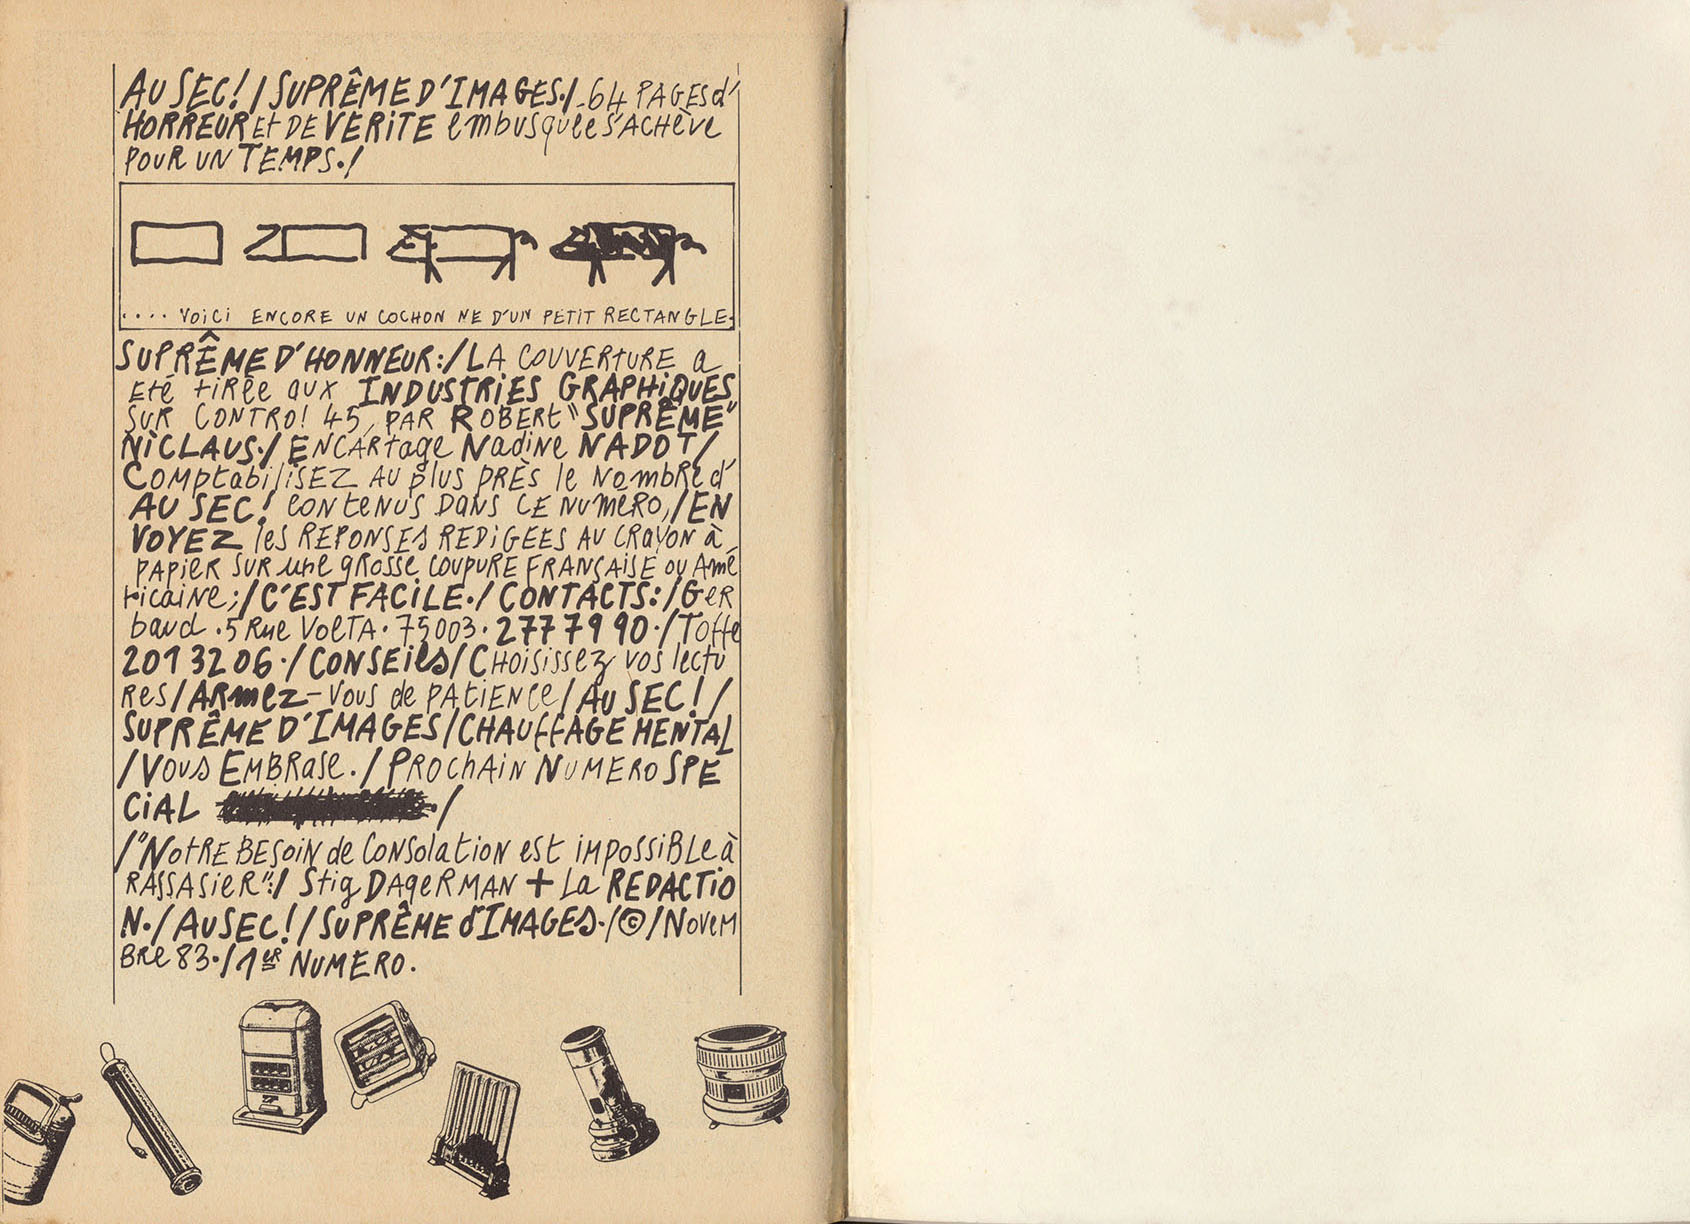 AU SEC! / SUPRÊME D'IMAGES. / . 64 PAGES d'
HORREUR Et DE VERITE embusquée s'ACHÈVE
POUR UN TEMPS. /
.... Voici ENCORE UN COCHON NE D'UN PETIT RECTANGLE.
SUPRÊME D'HONNEUR: / LA COUVERTURE a
Eté tiRée aux INDUSTRIES GRAPHiQUES
SUR CONTRO! 45, PAR ROBERt "SUPRÊME"
NiCLAUS. / ENCARtage Nadine NADOT /
Comptabilisez AU plus PRÈS le NombRe d'
AU SEC! contenus DANS CE NUméro, / EN
VOYEZ les REPONSES REDIGEES AU CRAYON à
PAPiER SUR une gROSSE COUPURE FRANÇAISE OU Amé
ricaine; / C'EST FACILE. / CONTACTS: / GeR
baud . 5 Rue VolTA . 75003 . 277 79 90 . / Toffe
201 32 06 . / CONSEils / CHoisissez vos lectu
Res / ARmez-vous de PAtiENce / AU SEC! /
SUPRÊME D'IMAGES / CHAUffAGE MENTAL
/ Vous EmBRase. / PROchAiN NUMERO SPE
CiAL /
/ "NotRE BESoiN de CoNSolation est iMPoSSiBLe à
RASSASIER": / Stig DAgeRMAN + La REDACTIO
N. / AU SEC! / SUPRÊME d'IMAGES. / © / Novem
BRe 83. / 1ER NUMERO.